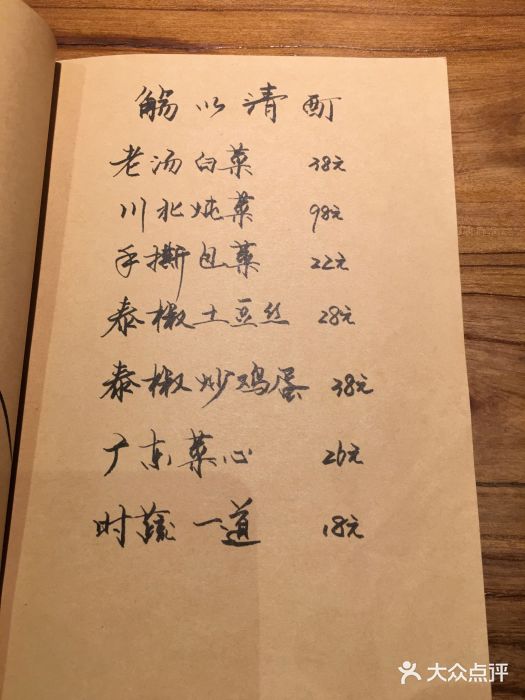 觞以清酊
老汤白菜 38元
川北炖菜 98元
手撕包菜 22元
泰椒土豆丝 28元
泰椒炒鸡蛋 38元
广东菜心 26元
时蔬一道 18元
大众点评